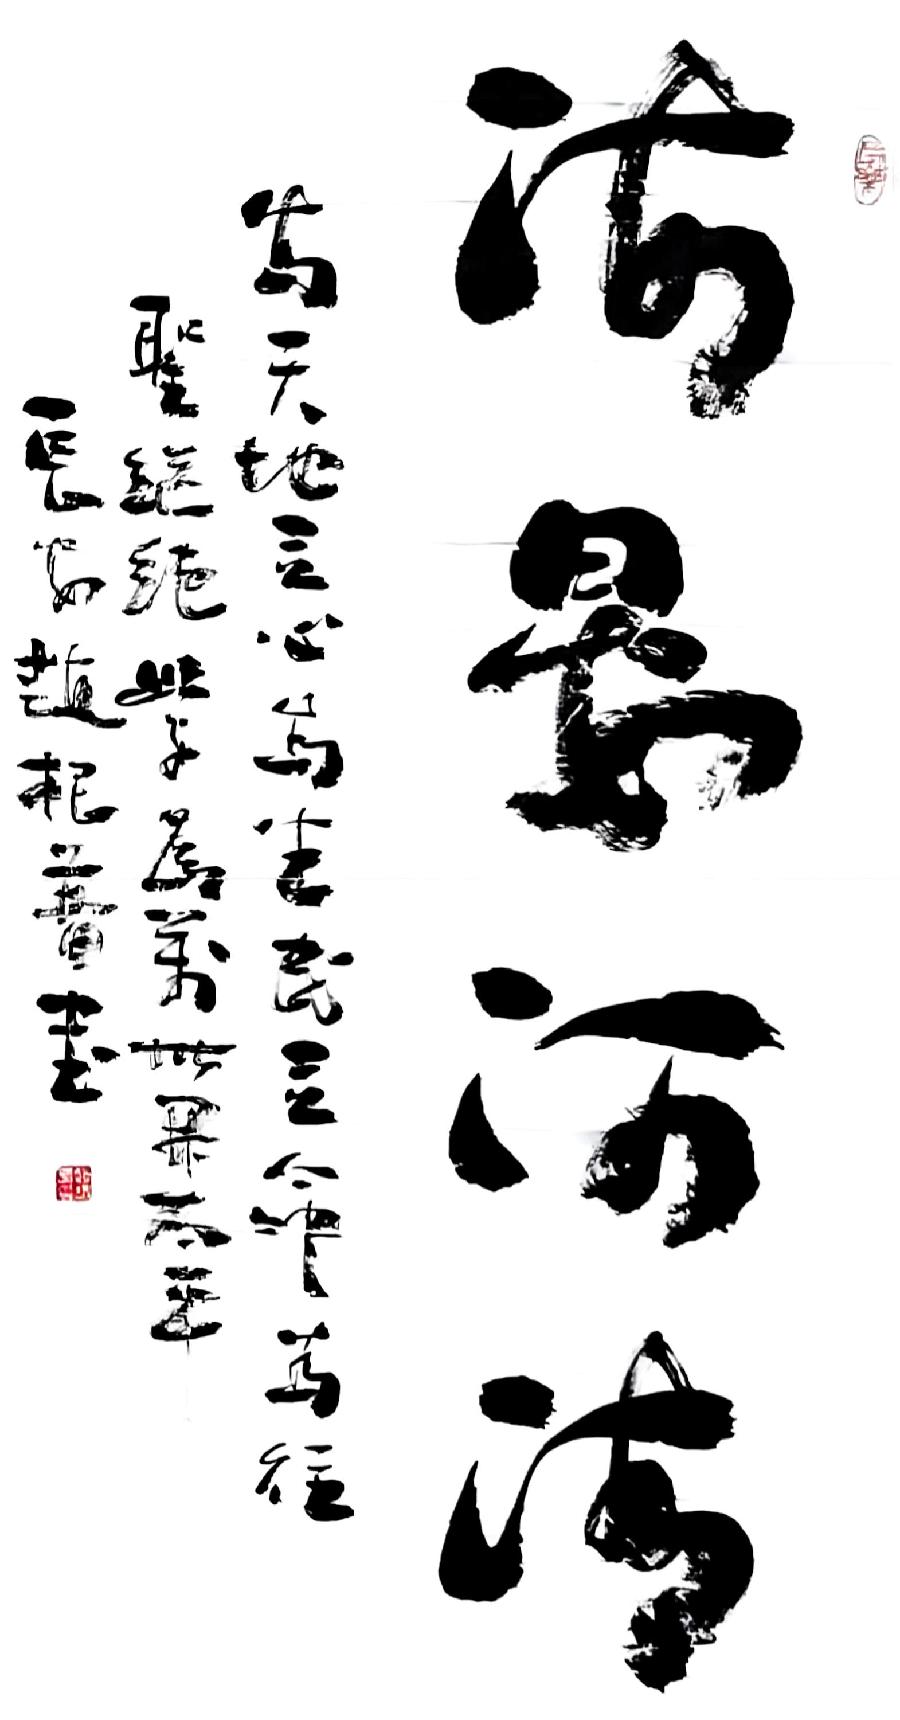 海晏河清
為天地立心為生民立命為往
聖繼絕學為萬世開太平
長安趙根書